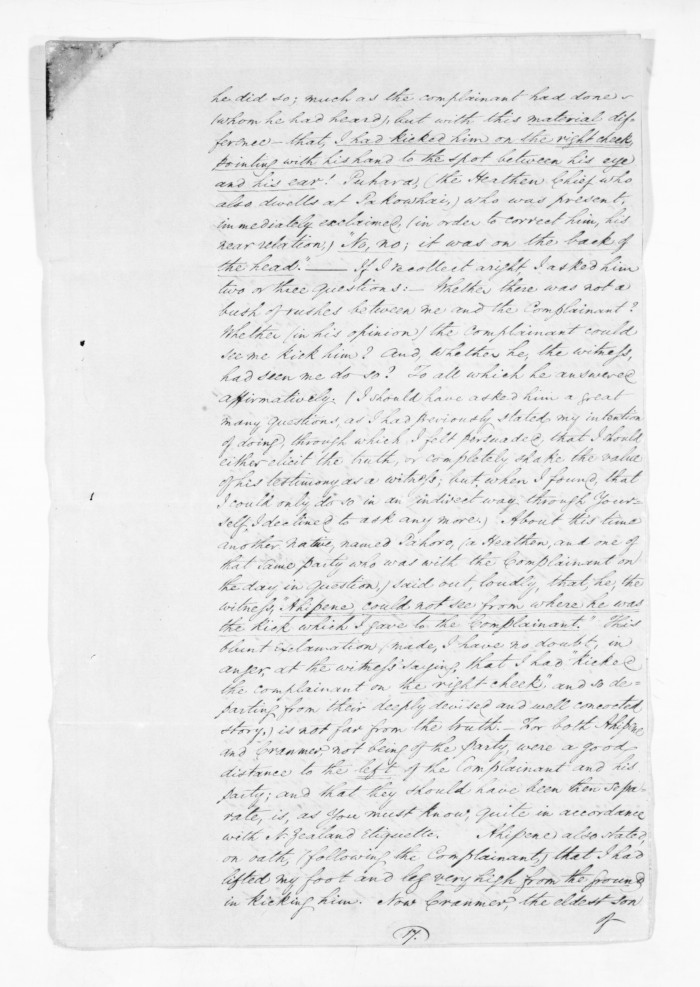 he did so; much as the complainant had done –
(whom he had heard), but with this material dif-
ference – that, I had kicked him on the right cheek,
pointing with his hand to the spot between his eye
and his ear! Puhara, (the Heathen Chief who
also dwells at Pakowhai,) who was present,
immediately exclaimed, (in order to correct him, his
near relation,) "No, no; it was on the back of
the head." —— If I recollect aright I asked him
two or three questions:– Whether there was not a
bush of rushes between me and the Complainant?
Whether (in his opinion) the Complainant could
see me kick him? And, whether he, the witness,
had seen me do so? To all which he answered
affirmatively. (I should have asked him a great
many questions, as I had previously stated my intention
of doing, through which I felt persuaded that I should
either elicit the truth, or completely shake the value
of his testimony as a witness; but when I found, that
I could only do so in an indirect way through Your-
self, I declined to ask any more.) About this time
another native, named Pahoro, (a Heathen, and one of
that same party who was with the Complainant on
the day in question,) said out, loudly, that, he, the
witness, "Ahipene, could not see from where he was
the kick which I gave to the Complainant." This
blunt exclamation, made, I have no doubt, in
anger, at the witness' saying, that I had "kicked
the complainant on the right cheek", and so de-
parting from their deeply devised and well concocted
story,) is not far from the truth. – For both Ahipene
and Cranmer, not being of the party, were a good
distance to the left of the Complainant and his
party; and that they should have been then sepa-
rate, is, as You must know, quite in accordance
with N. Zealand Etiquette. Ahipene also stated,
on oath, (following the Complainant,) that I had
lifted my foot and leg very high from the ground
in kicking him. Now Cranmer, the eldest son
of
17.